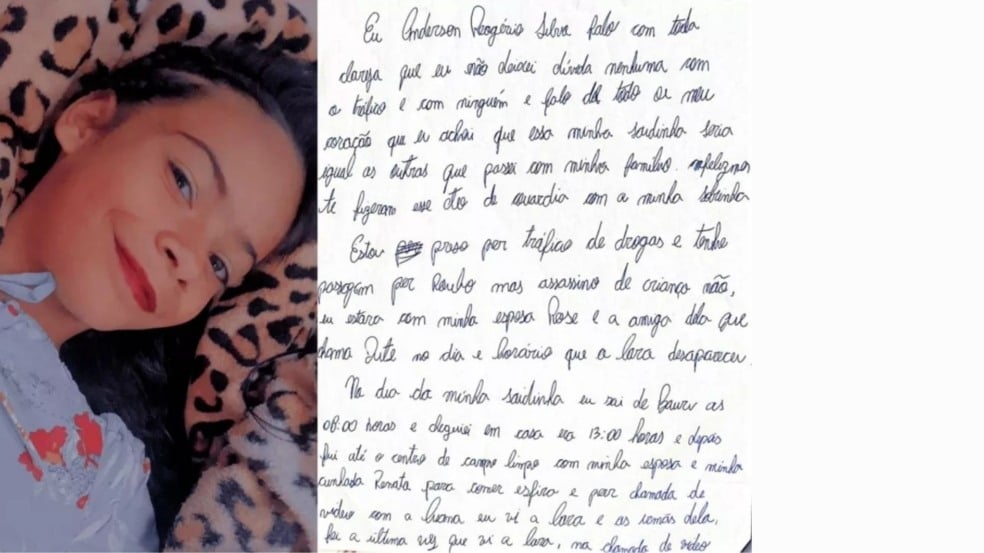 Eu Anderson Rogério Silva falo com toda
clareza que eu não deixei dúvida nenhuma com
o tráfico e com ninguém e falo de todo o meu
coração que eu achei que essa minha saidinha seria
igual as outras que passei com minha família. infelizmen
te fizeram esse ato de covardia com a minha sobrinha
Estou preso por tráfico de drogas e tenho
passagem por Roubo mas assassino de criança não,
eu estava com minha esposa Rose e a amiga dela que
chama no dia e horário que a lara desapareceu
No dia da minha saidinha eu sai de Bauru as
08:00 horas e cheguei em casa era 13:00 horas e depois
fui até o centro de campo limpo com minha esposa e minha
cunhada Renata para comer esfira e por chamada de
vídeo com a luana eu vi a lara e as irmãs dela,
foi a última vez que vi a lara, na chamada de vídeo